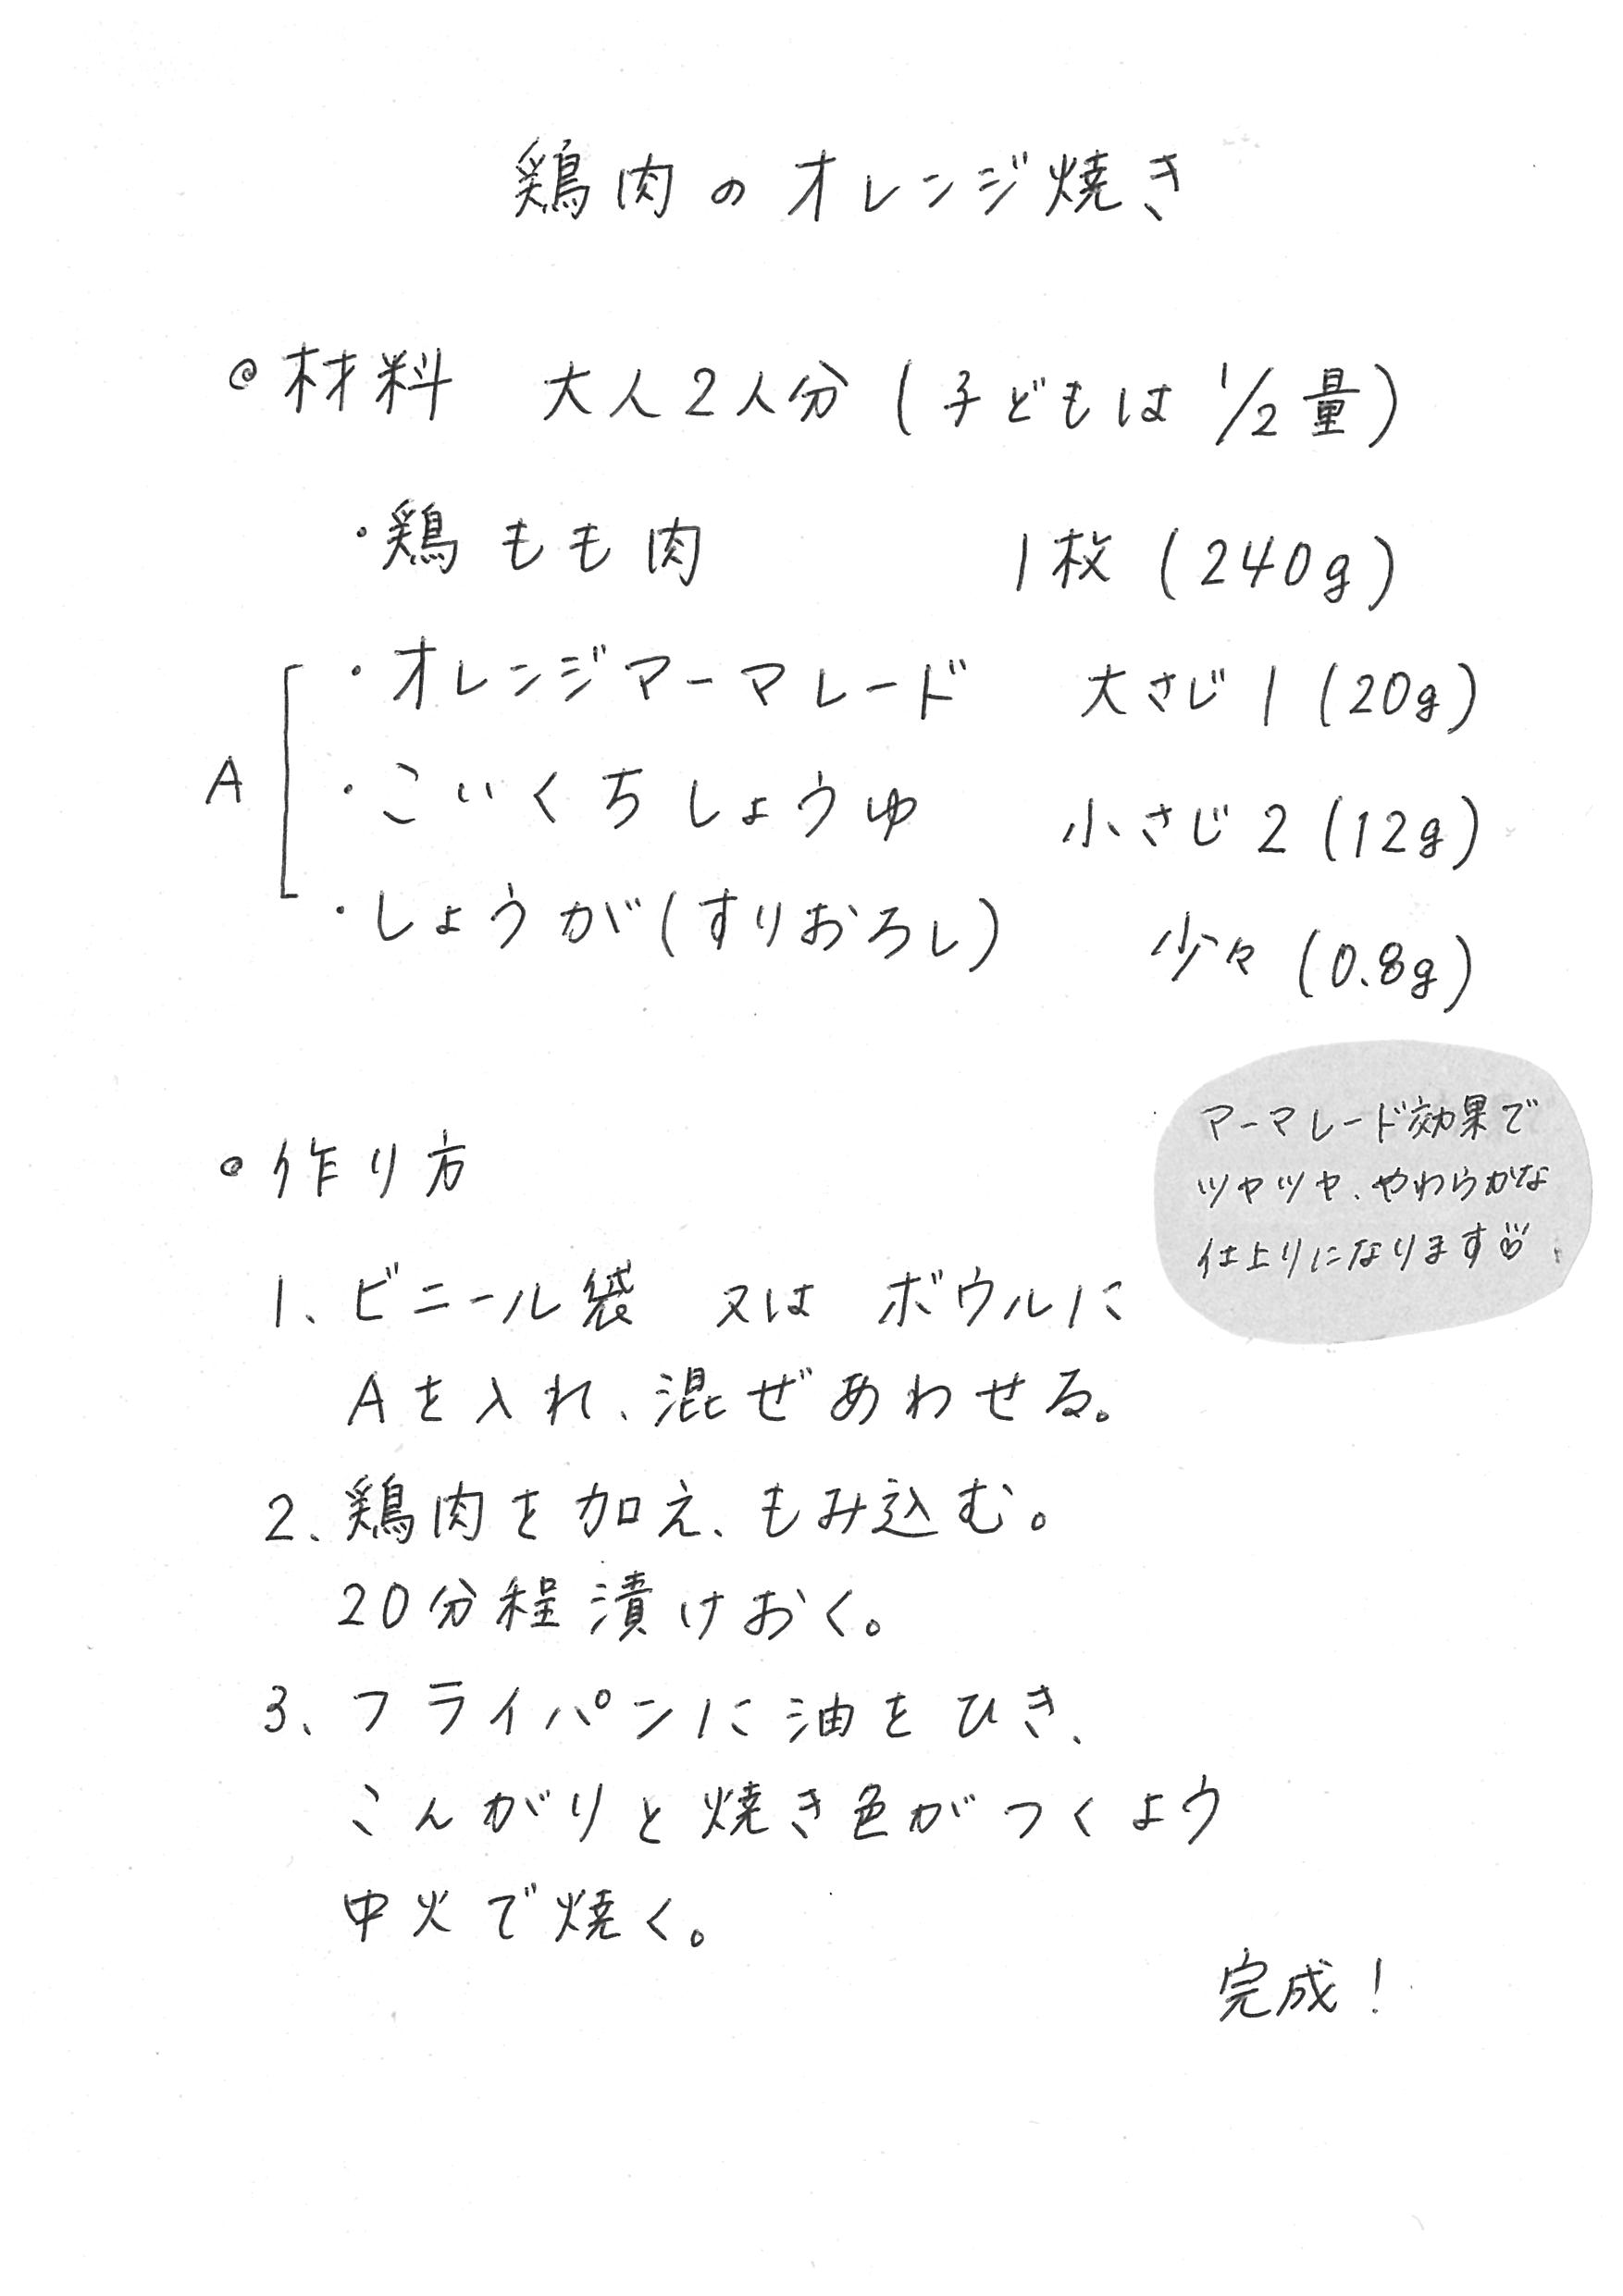 鶏肉のオレンジ焼き
◎材料 大人2人分(子どもは1/2量)
・鶏もも肉 1枚(240g)
A
・オレンジマーマレード 大さじ1(20g)
・こいくちしょうゆ 小さじ2(12g)
・しょうが(すりおろし) 少々(0.8g)
マーマレード効果で
ツヤツヤ、やわらかな
仕上りになります♡
◎作り方
1、ビニール袋 又は ボウルに
Aを入れ、混ぜあわせる。
2、鶏肉を加え、もみ込む。
20分程漬けおく。
3、フライパンに油をひき、
こんがりと焼き色がつくよう
中火で焼く。
完成!